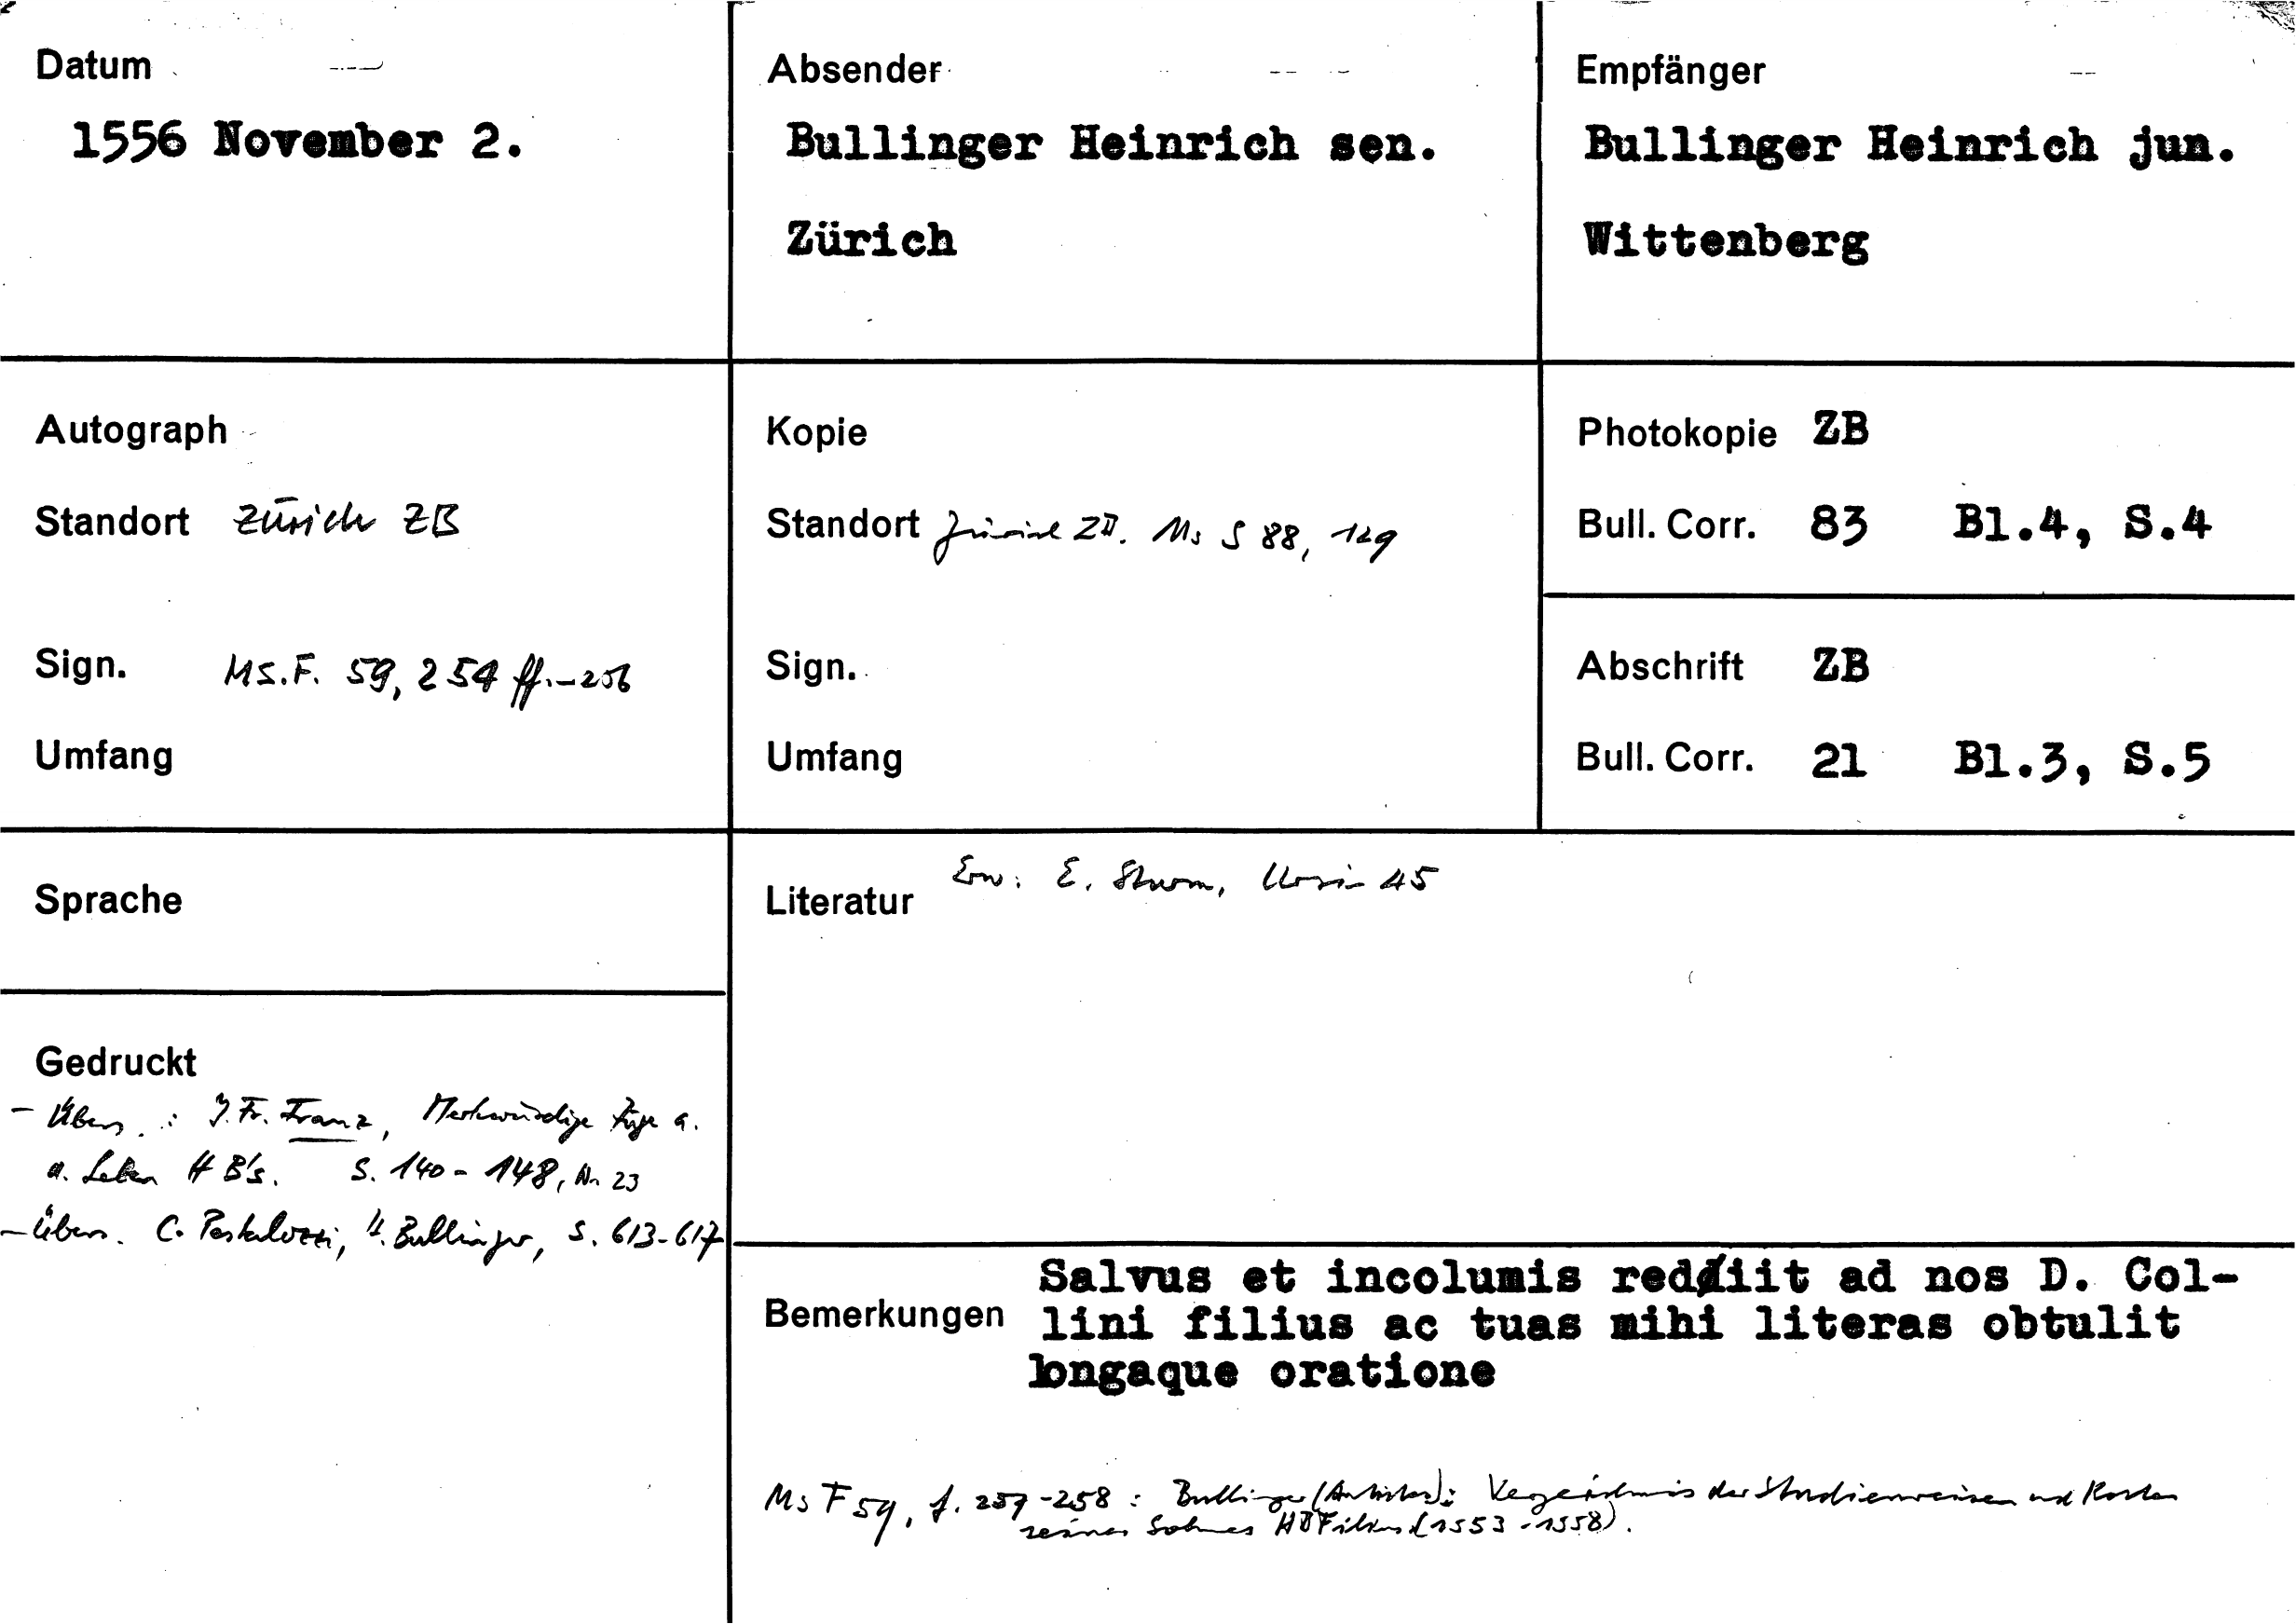 Datum
1556 November 2.
Absender
Bullinger Heinrich sen.
Zürich
Empfänger
Bullinger Heinrich jun.
Wittenberg
Autograph
Standort Zürich ZB
Sign. Ms.F. 59, 254 ff.-256
Umfang
Kopie
Standort Zürich ZB. Ms S 88, 129
Sign.
Umfang
Photokopie ZB
Bull. Corr. 83 Bl.4, S.4
Abschrift ZB
Bull. Corr. 21 Bl.3, S.5
Sprache
Literatur Erw: E. Sturm, Ursin 45
Gedruckt
- Übers.: J. Fr. Franz, Merkwürdige Züge a.
a. Leben H B's. S. 140-148, Nr 23
- Übers. C. Pestalozzi, H. Bullinger, S. 613-617
Bemerkungen
Salvus et incolumis rediit ad nos D. Col-
lini filius ac tuas mihi literas obtulit
longaque oratione
Ms F 59, f. 257-258: Bullinger (Antistes): Verzeichnis der Studienreisen und Kosten
seines Sohnes HB Filius (1553-1558).